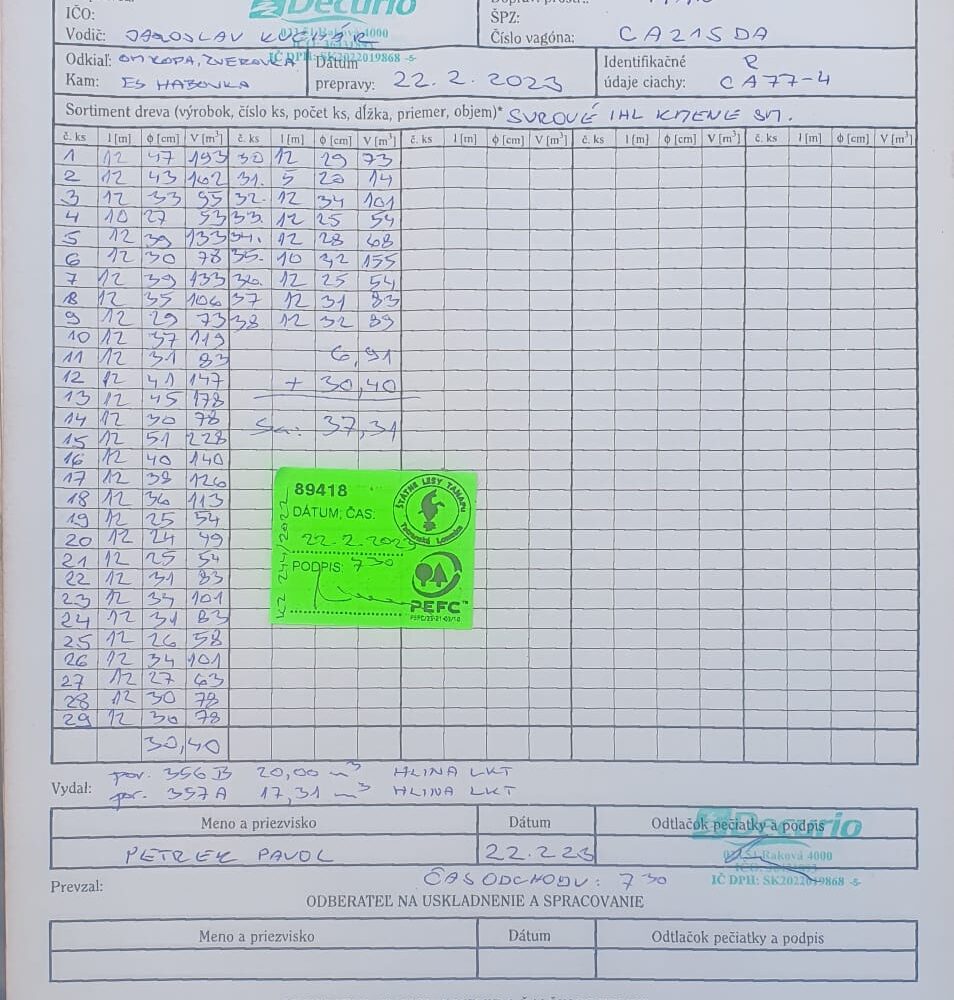 Decurio
IČO:
ŠPZ:
Vodič: JAROSLAV
Číslo vagóna: CA215DA
IČ DPH: SK2022019868 -5-
Odkiaľ: ZVEROVKA
Dátum
Identifikačné R
Kam: ES HABOVKA
prepravy: 22.2.2023
údaje ciachy: CA77-4
Sortiment dreva (výrobok, číslo ks, počet ks, dĺžka, priemer, objem)* SUROVÉ IHL KMENE SM.
č. ks l [m] ϕ [cm] V [m³] č. ks l [m] ϕ [cm] V [m³] č. ks l [m] ϕ [cm] V [m³] č. ks l [m] ϕ [cm] V [m³] č. ks l [m] ϕ [cm] V [m³]
1 12 47 193 30 12 29 73
2 12 43 162 31. 5 20 14
3 12 33 95 32. 12 34 101
4 10 27 53 33. 12 25 54
5 12 39 133 34. 12 28 68
6 12 30 78 35. 10 155
7 12 39 133 36. 12 25 54
8 12 35 106 37 12 31 83
9 12 29 73 38 12 32 89
10 12 37 119
11 12 31 83 6,91
12 12 41 147 + 30,40
13 12 45 178
14 12 30 78 Sa: 37,31
15 12 51 228
16 12 40 140
17 12 38 126
18 12 36 113
19 12 25 54
20 12 24 49
21 12 25 54
22 12 31 83
23 12 34 101
24 12 31 83
25 12 26 58
26 12 34 101
27 12 27 63
28 12 30 78
29 12 30 78
30,40
89418
ŠTÁTNE LESY TANAPU
Tatranská Lomnica
DÁTUM, ČAS:
22.2.2023
PODPIS: 730
KZ 244/2022
PEFC™
por. 356B 20,00 m³ HLINA LKT
Vydal: por. 357A 17,31 m³ HLINA LKT
Meno a priezvisko Dátum Odtlačok pečiatky a podpis
Decurio
PETREK PAVOL 22.2.23
023 51 Raková 4000
IČ DPH: SK2022019868 -5-
Prevzal: ČAS ODCHODU: 730
ODBERATEĽ NA USKLADNENIE A SPRACOVANIE
Meno a priezvisko Dátum Odtlačok pečiatky a podpis